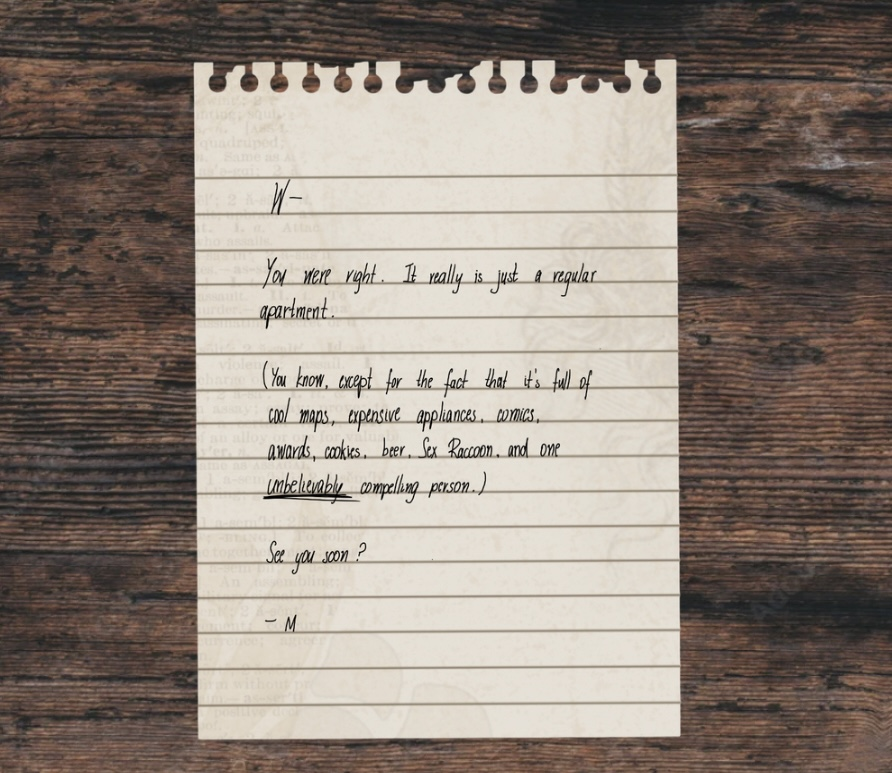 W-
You were right. It really is just a regular
apartment.
(You know, except for the fact that it's full of
cool maps, expensive appliances, comics,
awards, cookies, beer, Sex Raccoon, and one
unbelievably compelling person.)
See you soon?
- M